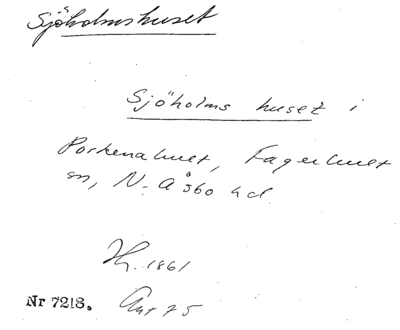 Sjöholmshuset
Sjöholms huset i
Porkenahult, Fagerhult
sn, N. Åsbo hd
Hr. 1861
Nr 7218. Aut 75